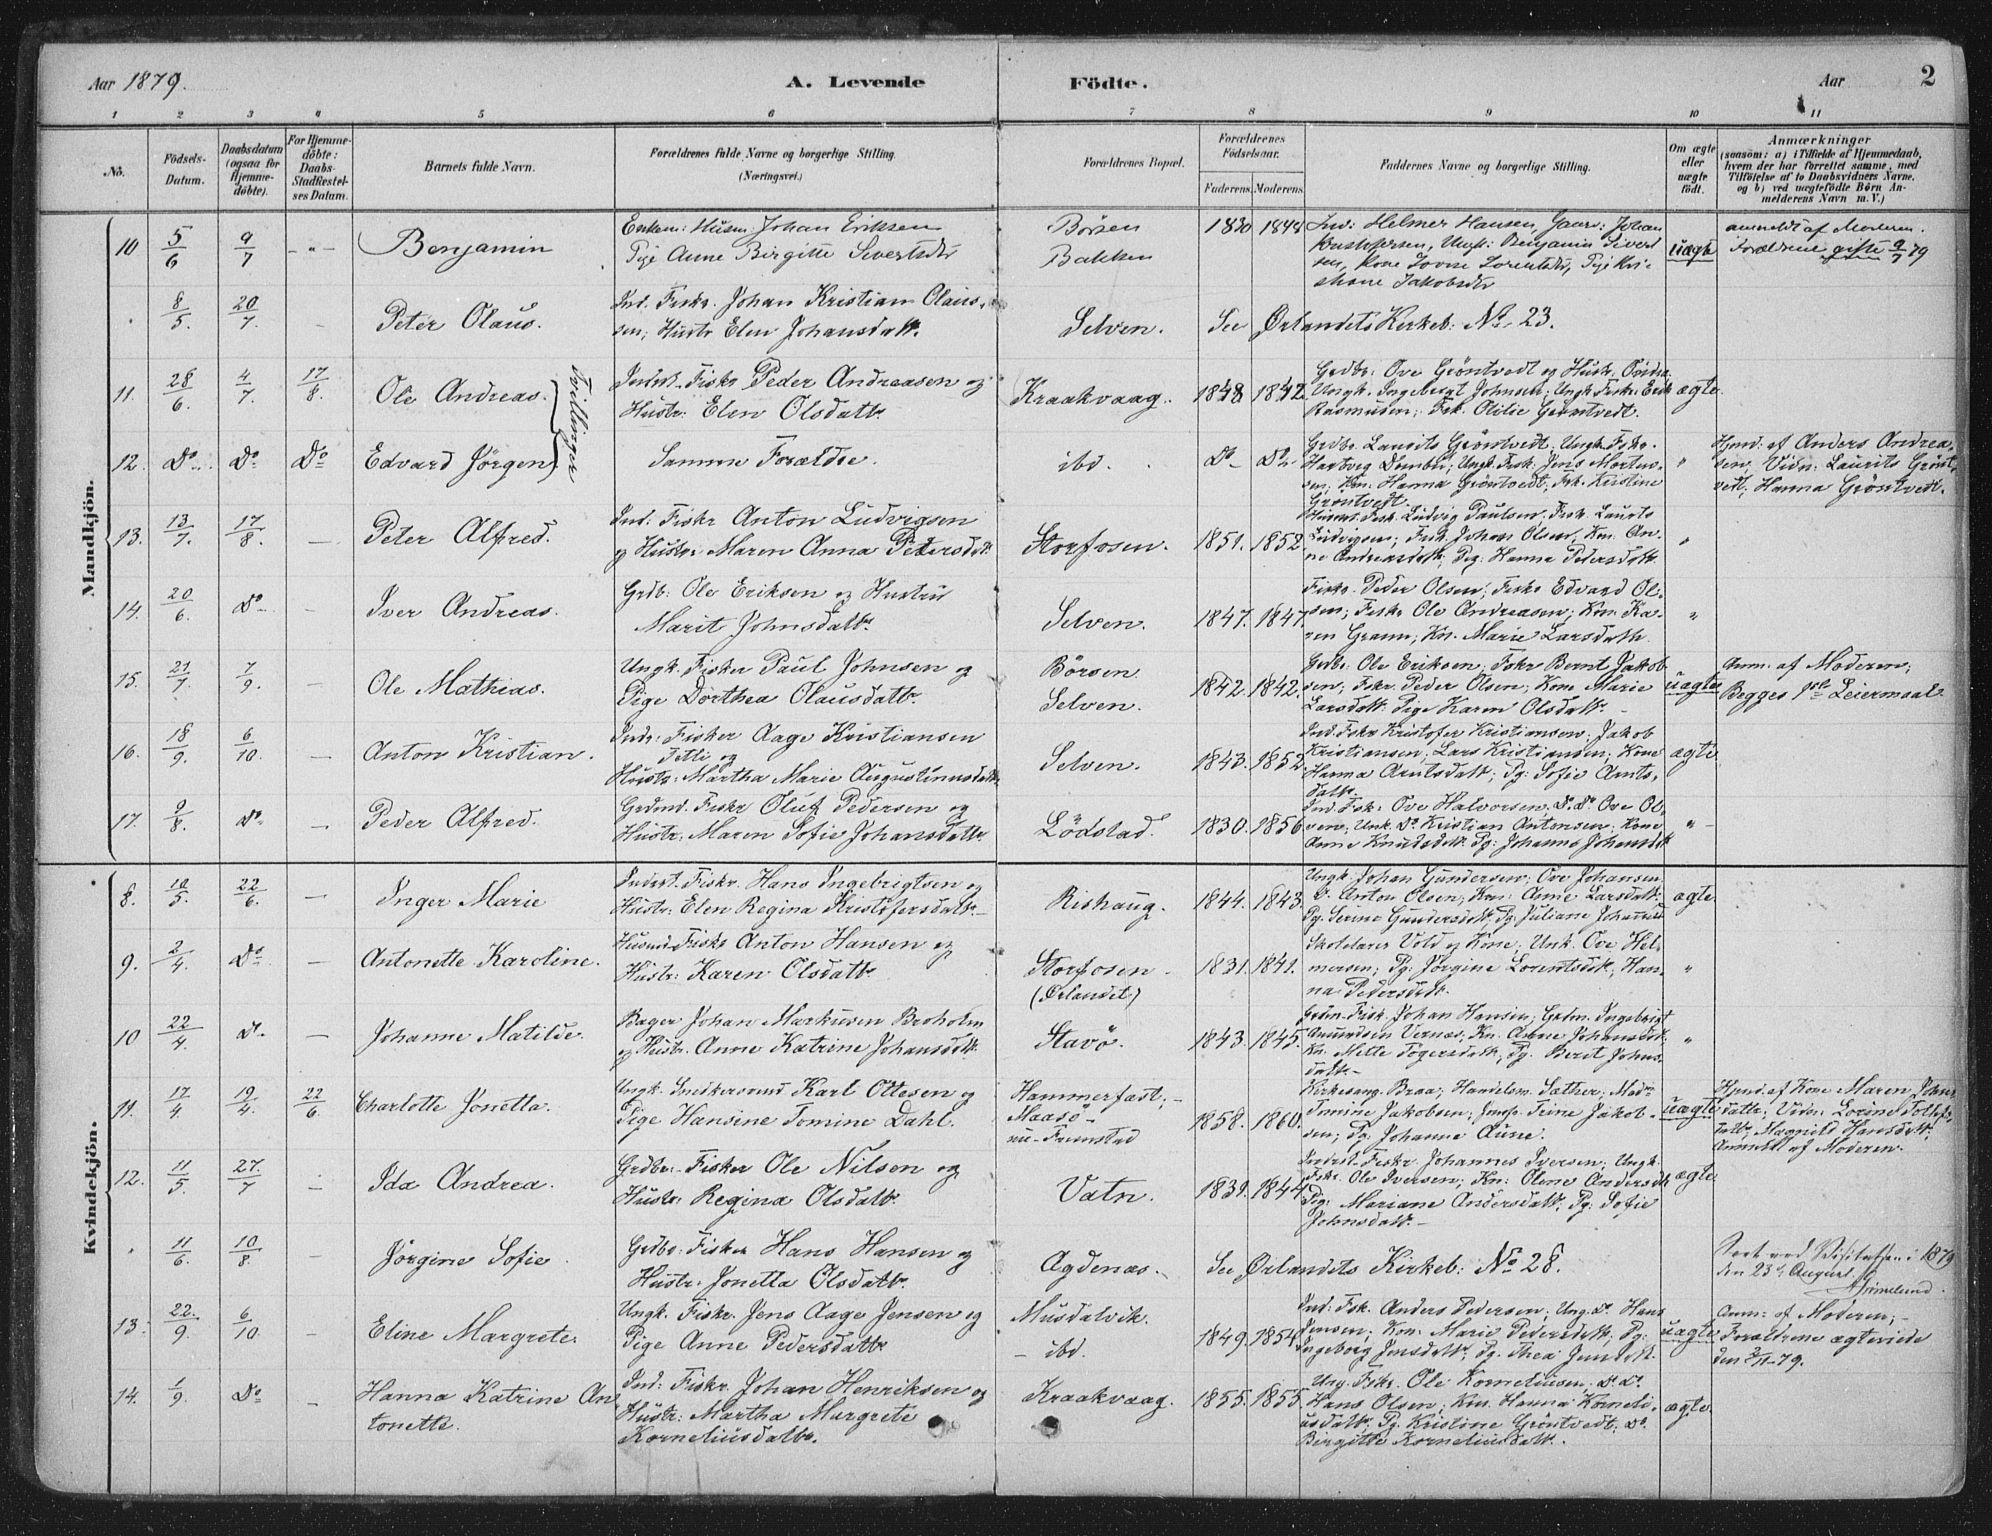 Aar 1879.
A. Levende Födte.
Aar
2
1 2 3 4 5 6 7 8 9 10 11
No.
Födsels-Datum.
Daabsdatum (ogsaa for Hjemme-döbte).
For Hjemme-döbte: Daabs-Stadfæstel-ses Datum.
Barnets fulde Navn.
Forældrenes fulde Navne og borgerlige Stilling. (Næringsvei.)
Forældrenes Bopæl.
Forældrenes Födselsaar.
Faderens. Moderens.
Faddernes Navne og borgerlige Stilling.
Om ægte eller uægte födt.
Anmærkninger
(saasom: a) i Tilfælde af Hjemmedaab,
hvem der har forrettet samme, med
Tilföielse af to Daabsvidners Navne,
og b) ved uægtefödte Börn An-
melderens Navn m. V.)
Mandkjön.
10 5/6 9/7 -"- Benjamin
Enkem: Husm Johan Eriksen
Pige Anne Birgitte Sivertsdtr
Börsen
Bakken
1830 1848
Ind: Helmer Hansen, Gaar: Johan
Kristofersen, Ungk: Benjamin Sivert
sen, Kone Lovise Lorentsdtr, Pige Kri-
stiane Jakobsdtr
uægte
anmeldt af Moderen.
Forældrene gifte 9/7 79
8/5. 20/7. - Peter Olaus.
Ind. Fiskr. Johan Kristian Olaus-
sen, Hustr Elen Johansdatt.
Selven.
See Ørlandets Kirkeb: No 23.
11. 28/6. 4/7. 17/8. Ole Andreas.
Tvillinger
Inderst. Fiskr Peder Andreasen og
Hustr: Elen Olsdattr
Kraakvaag.
1848 1842.
Grdbr. Ove Gröntvedt og Hustr.
Ungk. Ingebrigt Johnsen; Ungk Fiskr. Erik
Rasmusen; Frk. Otilie Gröntvedt.
ægte
12. Do Do Do Edvard Jörgen
Samme Forældre.
ibd.
Do Do
Grdbr. Laurits Gröntvedt; Ungk. Fiskr.
Hartvig; Ungk. Fisk: Jens Morten-
sen, Kn. Hanna Gröntvedt; Frk. Kristine
Gröntvedt.
"
Hjmd: af Anders Andrea-
sen, Vidn: Laurits Grönt-
vedt, Hanna Gröntvedt.
13. 13/7. 17/8. - Peter Alfred.
Ind: Fiskr Anton Ludvigsen
og Hustr: Maren Anna Petersdatt
Storfosen.
1851. 1852
Husmd. Fisk. Ludvig Paulsen. Fisk Laurts
Ludvigsen; Fisk Johan Olsen, Kn. An-
ne Andreasdatt; Pig: Hanna Petersdatt
"
14. 20/6. Do - Iver Andreas.
Grdb: Ole Eriksen og Hustru
Marit Johnsdattr.
Selven.
1847. 1847.
Fiskr. Peder Olsen; Fiskr Edvard Ol-
sen; Fiskr Ole Andreasen; Kon Ka-
ren Grann; Kn. Marie Larsdattr.
"
15. 21/7. 7/9. - Ole Mathias.
Ungk. Fisker Paul Johnsen og
Pige Dorthea Olausdattr.
Börsen
Selven.
1842. 1842.
Grdbr: Ole Eriksen; Fskr Bernt Jakob
sen; Fskr. Peder Olsen; Kone Marie
Larsdatt. Pige Karen Olsdatt.
uægte
Anm. af Moderen;
Begges 1ste Leiermaal
16. 18/9. 6/10. - Anton Kristian.
Indr: Fisker Aage Kristiansen
Tetli og
Hustr: Martha Marie Augustinusdatt.
Selven.
1843. 1852
Ind. Fskr Kristofer Kristiansen. Jakob
Kristiansen; Lars Kristiansen; Kone
Hanna Arntsdatt; Pg: Sofie Arnts-
datt.
ægte
17. 9/8. Do - Peder Alfred.
Grdmd. Fiskr Oluf Pedersen og
Hustr: Maren Sofie Johansdattr.
Lödstad.
1830. 1856
Ind. Fsk: Ove Halvorsen. Do. Do Ove Ol-
sen; Unk. Do Kristian Antonsen; Kone
Anne Knudsdatt. Pg: Johanna Johansdt
"
Kvindekjön.
8. 10/5. 22/6. - Inger Marie
Inderst. Fiskr. Hans Ingebrigtsen og
Hustr: Elen Regina Kristofersdatt.
Rishaug.
1844. 1843.
Ungk. Johan Gundersen; Ove Johansen.
Do. Anton Olsen; Kn: Anne Larsdatt.
Pg. Serine Gundersdatt, Pg. Juliane Johansdt
ægte
9. 2/4. Do - Antonette Karoline.
Husmd. Fiskr Anton Hansen og
Hustr: Karen Olsdattr.
Storfosen -
(Ørlandet)
1831. 1841.
Skolelærer Vold og Kone; Unk. Ove Hel-
mersen; Pg: Jörgine Lorentsdtt, Han-
na Pedersdatt.
"
10 22/4 Do - Johanne Matilde.
Bager Johan Markusen Broholm
og Hustr. Anne Katrine Johansdatt.
Stavö.
1843. 1845.
Grdm. Fisk. Johan Hansen; Grdm. Ingebrigt
Amundsen Vernæs; Kn. Anne Johansdatt
Kn. Mette Togersdatt, Pg. Berit Johns-
datt.
"
11. 17/4. 19/4. 22/6. Charlotte Jonetta.
Ungk. Snedkersvend Karl Ottesen og
Pige Hansine Tomine Dahl.
Hammerfast; -
Maasö -
1858. 1860.
Kirkesang. Braa; Handelsm. Sæther; Mad
Tomine Jakobsen; Jomf. Trine Jakob-
sen; Pg. Johanne Aune.
uægte
Hjmd. af Kone Maren Johns-
dattr; Vidn: Lorine
datt, Magnild Hansdatt;
Anmeldt af Moderen.
12. 11/5. 27/7 - Ida Andrea.
Grdbr. Fisker Ole Nilsen og
Hustr Regina Olsdattr.
Vatn.
1831. 1844
Inderst. Fiskr. Johannes Iversen; Ungk.
Fskr. Ole Iversen; Kn: Oline Andersdt
Pg: Mariane Andersdatt; Pg: Sofie
Johnsdatt.
ægte
" 11/6. 10/8. - Jörgine Sofie.
Grdbr: Fisker Hans Hansen og
Hustr. Jonetta Olsdattr.
Agdenæs.
See Ørlandets Kirkeb: No 28.
Seet ved Visitatsen i 1879
den 23de August
Grimelund.
13. 22./9. 6/10. - Eline Margrete.
Ungk. Fiskr. Jens Aage Jensen og
Pige Anne Pedersdattr
Musdalvik.
- ibd.
1849. 1854
Ind: Fsk. Anders Pedersen; Ung. Do Hans
Jensen; Kon. Marie Pedersdatt, Pg:
Ingeborg Jensdatt; Pg. Thea Jensdatt.
uægte
Anm: af Moderen; -
Forældrene ægteviede
den 2/11 - 79.
14. 1/9. Do - Hanna Katrine An
tonette.
Ind: Fiskr. Johan Henriksen og
Hustr: Martha Margrete
Korneliusdattr.
Kraakvaag.
1855. 1855
Ung. Fskr. Ole Korneliusen. Do. Do.
Hans Olsen; Kon. Hanna Korneli-
usdatt; Pg. Kristine Gröntvedt; Do.
Birgitte Korneliusdatt.
ægte